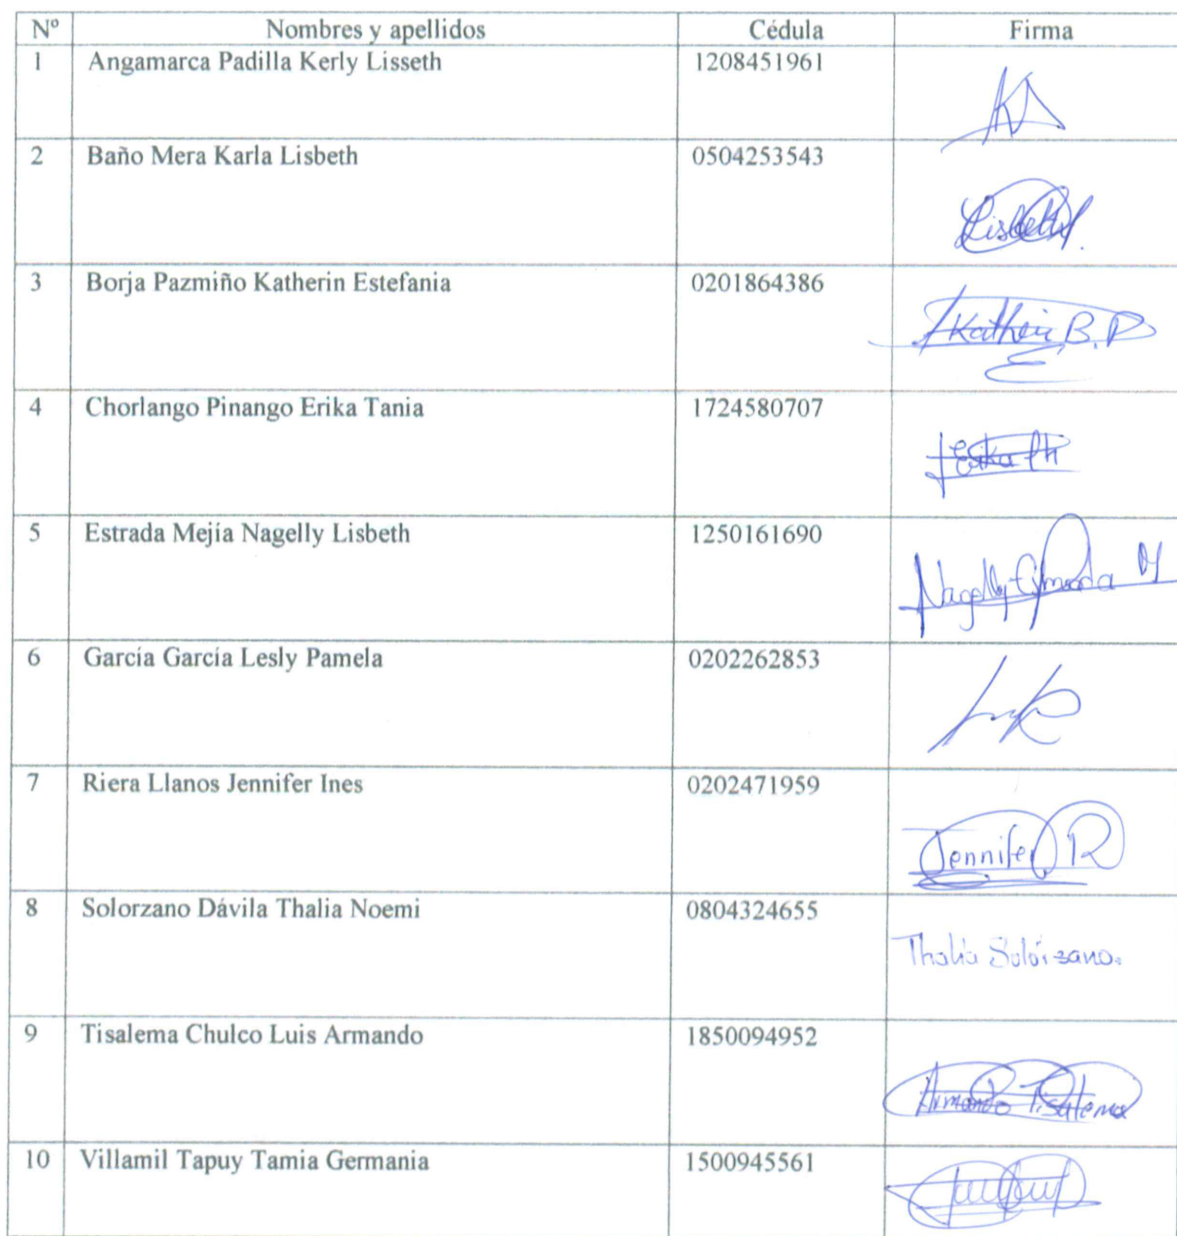 Nº Nombres y apellidos Cédula Firma
1 Angamarca Padilla Kerly Lisseth 1208451961
2 Baño Mera Karla Lisbeth 0504253543
Lisbeth
3 Borja Pazmiño Katherin Estefania 0201864386
Katherin B.P
4 Chorlango Pinango Erika Tania 1724580707
Erika Ch
5 Estrada Mejía Nagelly Lisbeth 1250161690
Nagelly
6 García García Lesly Pamela 0202262853
7 Riera Llanos Jennifer Ines 0202471959
Jennifer R
8 Solorzano Dávila Thalia Noemi 0804324655
Thalia Solórzano.
9 Tisalema Chulco Luis Armando 1850094952
Armando Tisalema
10 Villamil Tapuy Tamia Germania 1500945561